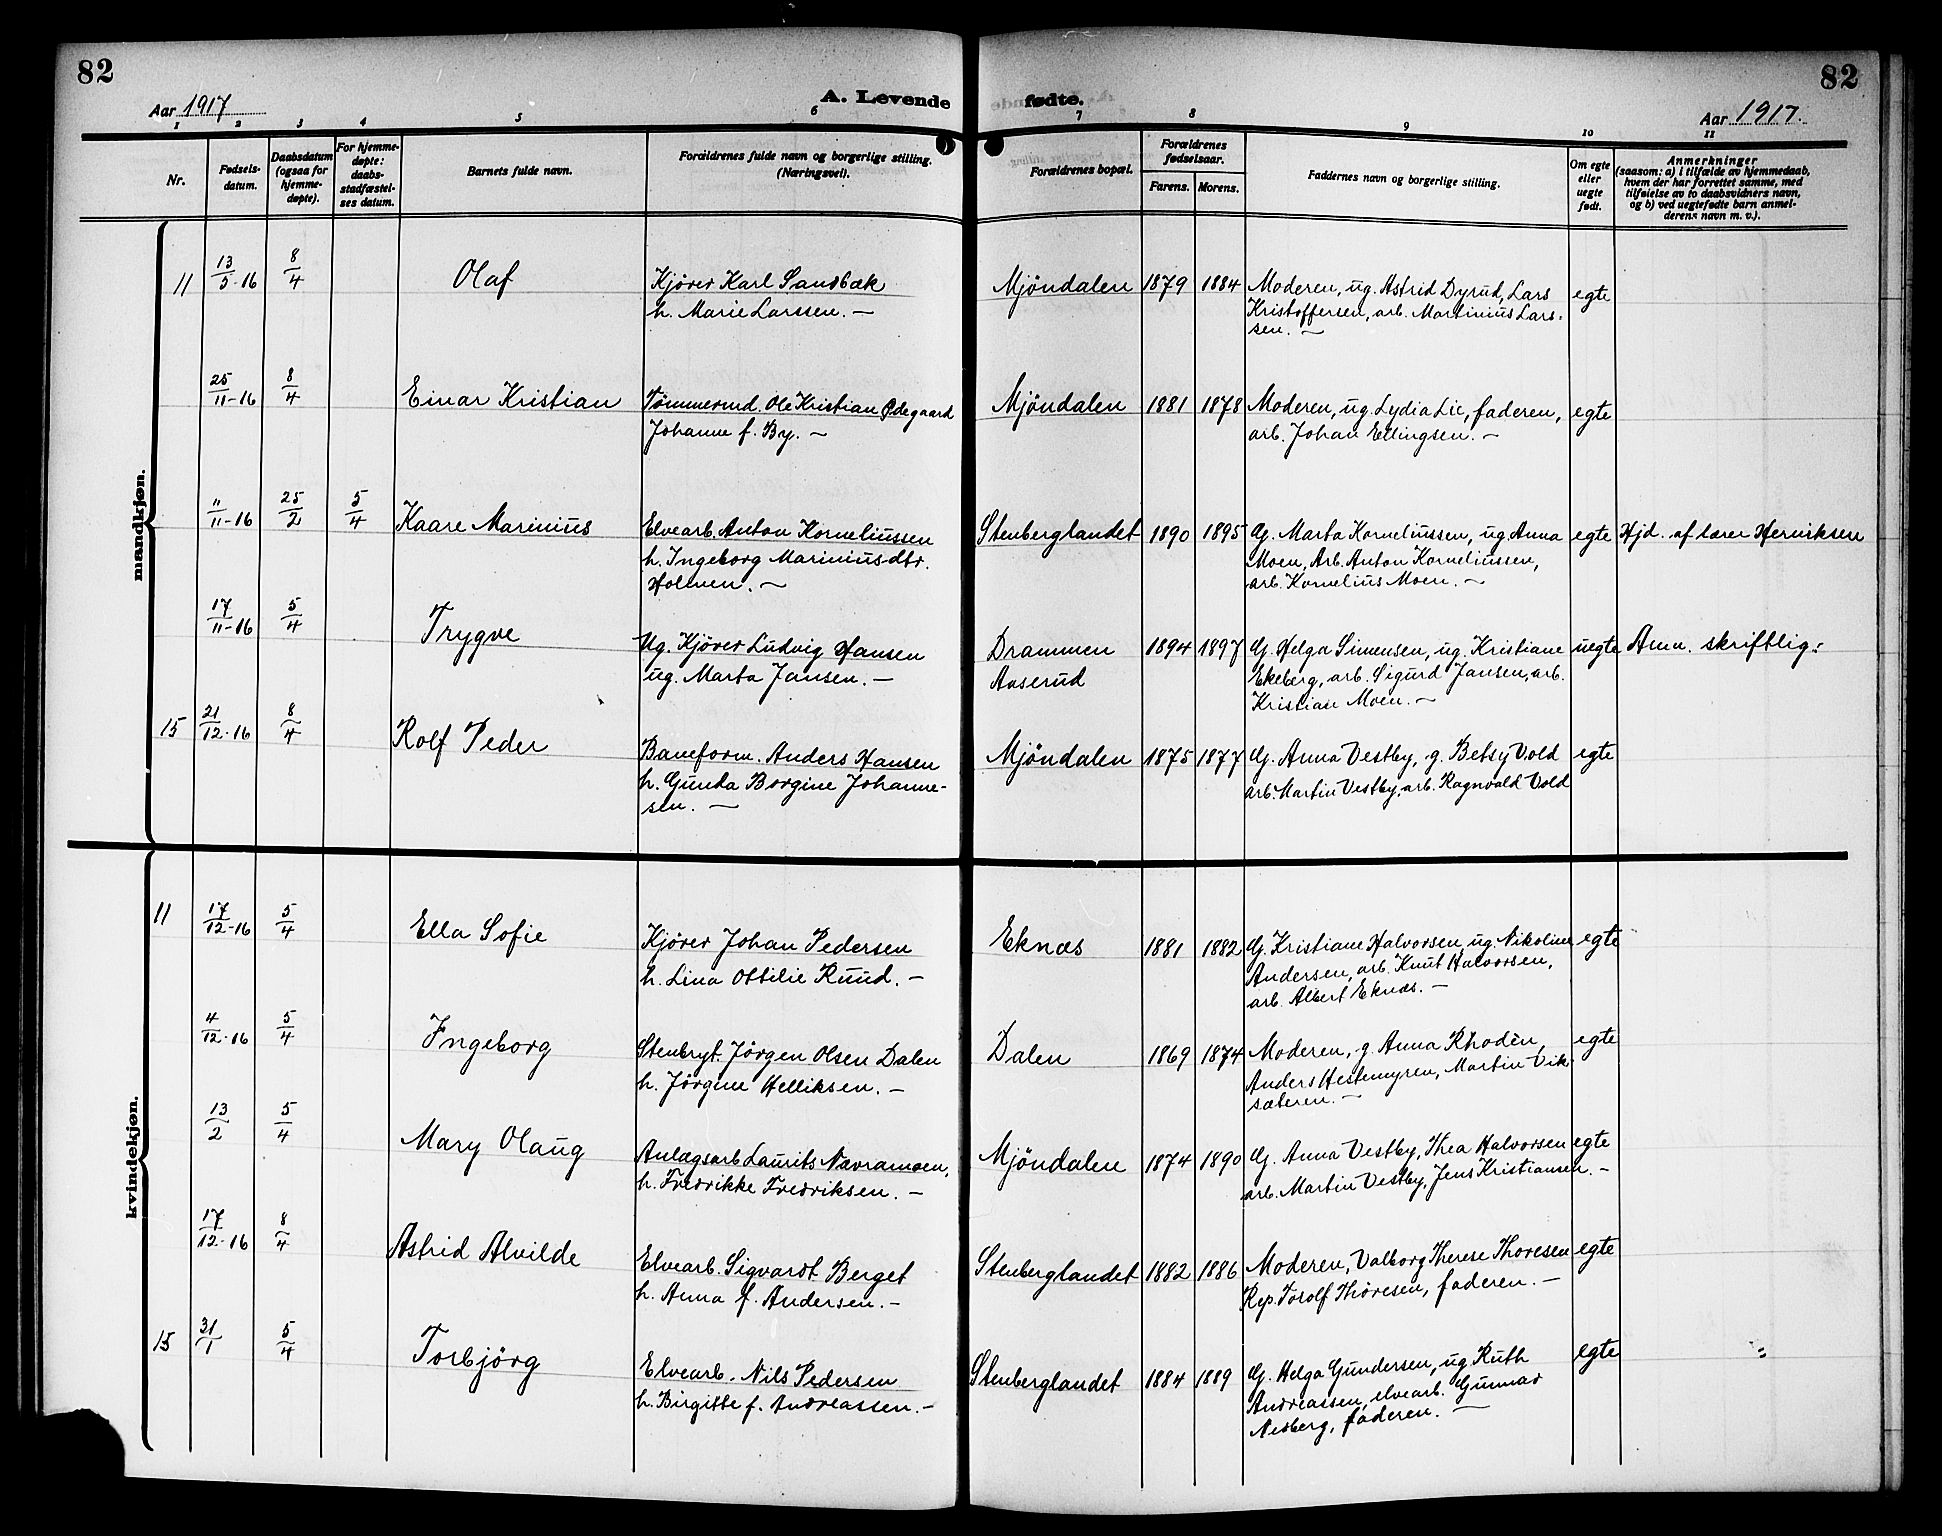 82
82
Aar 1917
A. Levende
fødte.
Aar 1917.
1 2 3 4 5 6 7 8 9 10 11
Nr.
Fødsels-
datum.
Daabsdatum
(ogsaa for
hjemme-
døpte).
For hjemme-
døpte:
daabs-
stadfæstel-
ses datum.
Barnets fulde navn.
Forældrenes fulde navn og borgerlige stilling.
(Næringsvei).
Forældrenes bopæl.
Forældrenes
fødselsaar.
Farens. Morens.
Faddernes navn og borgerlige stilling.
Om egte
eller
uegte
født.
Anmerkninger
(saasom: a) i tilfælde av hjemmedaab,
hvem der har forrettet samme, med
tilføielse av to daabsvidners navn,
og b) ved uegtefødte barn anmel-
derens navn m. v.).
mandkjøn.
11 13/5-16 8/4 Olaf
Kjörer Karl Sandbæk
h. Marie Larssen. —
Mjöndalen 1879 1884
Moderen, ug. Astrid Dyrud, Lars
Kristoffersen, arb. Martinius Lars-
sen. —
egte
25/11-16 8/4 Einar Kristian
Tömmermd. Ole Kristian Ödegaard
Johanne f. By. —
Mjöndalen 1881 1878
Moderen, ug. Lydia Lie, faderen,
arb. Johan Ellingsen. —
egte
11/11-16 25/2 5/4 Kaare Marinius
Elvearb. Anton Korneliussen
h. Ingeborg Mariniusdtr.
Holmen. —
Stenberglandet 1890 1895
G. Marta Korneliussen, ug. Anna
Moen, Arb. Anton Korneliussen,
arb. Kornelius Moen. —
egte
Hjd. af lærer Henriksen
17/11-16 5/4 Trygve
Ug. Kjörer Ludvig Hansen
ug. Marta Jansen. —
Drammen
Aaserud
1894 1897
G. Helga Simensen, ug. Kristiane
Ekeberg, arb. Sigurd Jansen, arb.
Kristian Moen. —
uegte
Anm. skriftlig:
15 21/12-16 8/4 Rolf Peder
Baneform. Anders Hansen
h. Gunda Borgine Johanne-
sen. —
Mjöndalen 1875 1877
G. Anna Vestby, g. Betsy Vold
arb. Martin Vestby, arb. Ragnvald Vold
egte
kvindekjøn.
11 17/12-16 5/4 Ella Sofie
Kjörer Johan Pedersen
h. Lina Ottilie Ruud. —
Eknæs 1881 1882
G. Kristiane Halvorsen, ug. Nikoline
Andersen, arb. Knut Halvorsen,
arb. Albert Eknæs. —
egte
4/12-16 5/4 Ingeborg
Stenbryt. Jörgen Olsen Dalen
h. Jörgine Helliksen. —
Dalen 1869 1874
Moderen, g. Anna Rhodèn,
Anders Hestemyren, Martin Vik-
sæteren. —
egte
13/2 5/4 Mary Olaug
Anlægsarb Laurits Navramoen,
h. Fredrikke Fredriksen. —
Mjöndalen 1874 1890
G. Anna Vestby, Thea Halvorsen
arb. Martin Vestby, Jens Kristiansen. —
egte
17/12-16 8/4 Astrid Alvilde
Elvearb. Sigvardt Berget
h. Anna f. Andersen. —
Stenberglandet 1882 1886
Moderen, Valborg Therese Thoresen
Rep. Torolf Thoresen, faderen. —
egte
15 31/1 5/4 Torbjörg
Elvearb. Nils Pedersen
h. Birgitte f. Andreassen. —
Stenberglandet 1884 1889
G. Helga Gundersen, ug. Ruth
Andreassen, elvearb. Gunnar
Nesberg, faderen. —
egte